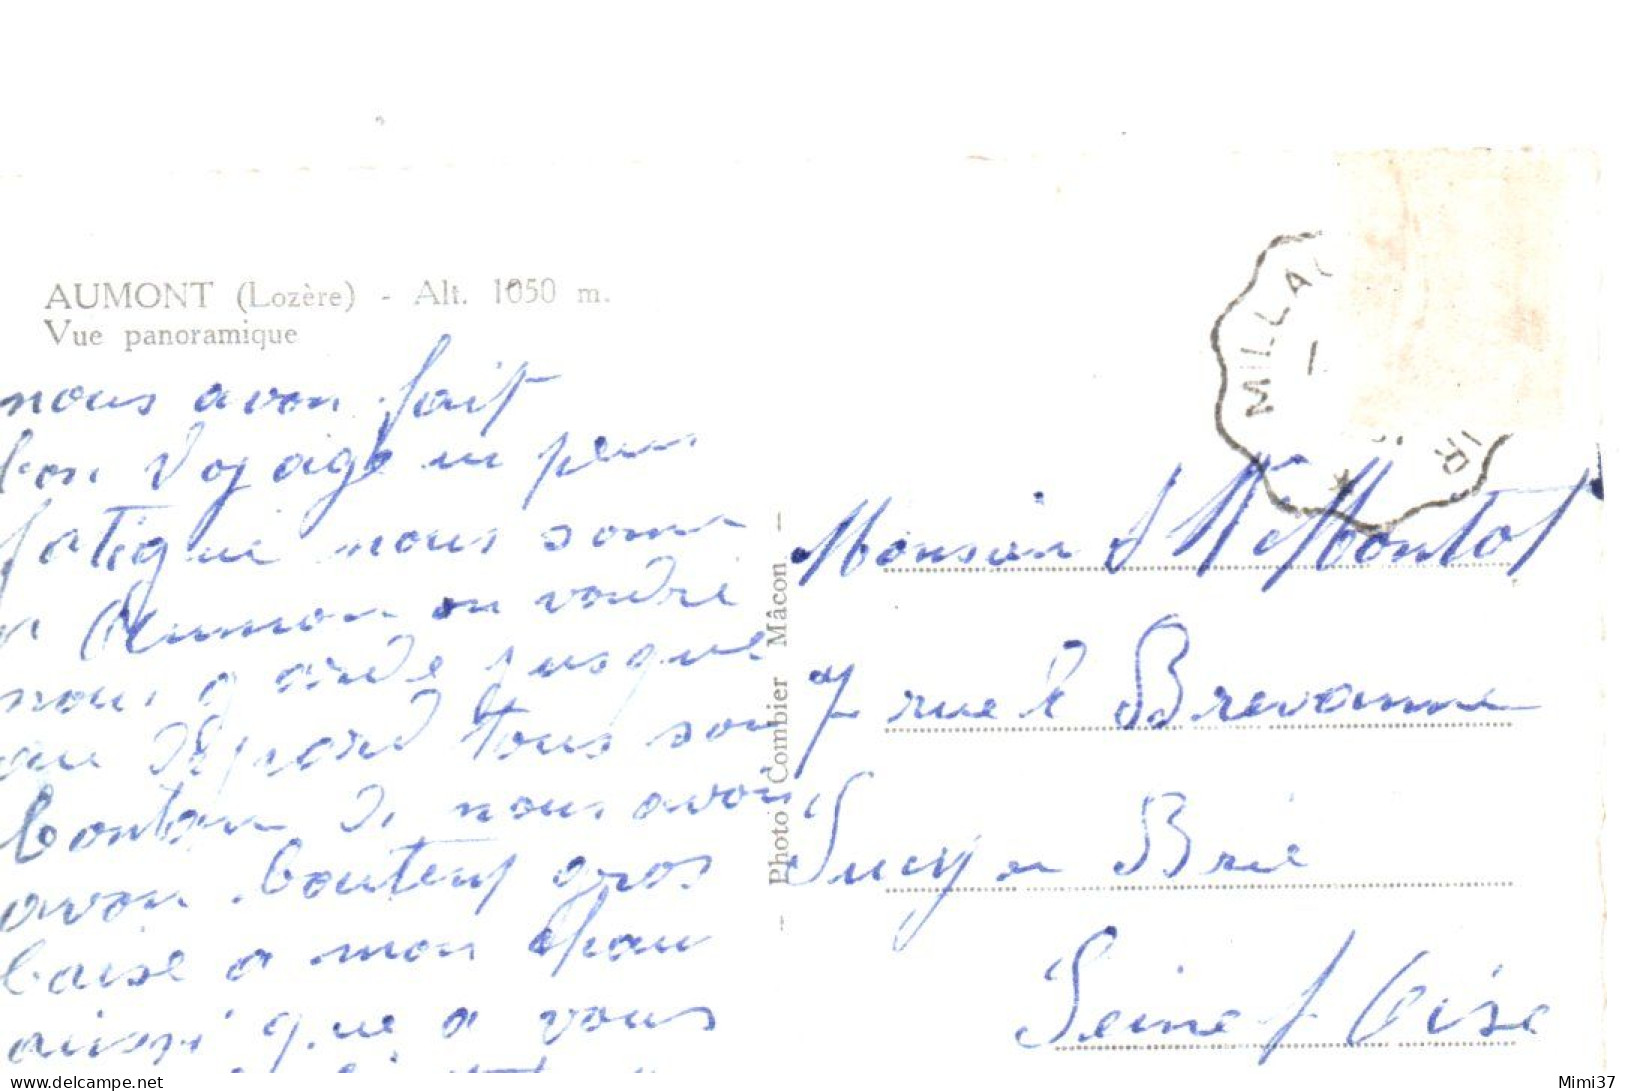 AUMONT (Lozère) - Alt. 1050 m.
Vue panoramique
nous avon fait
bon voyage un peu
fatigué nous som
nous garde jusque
au départ tous son
conten de nous avoir
avon bientôt gros
baise a mon
aussi que a vous
Photo Combier Mâcon
MILLA
Monsieur Montot
7 rue de Brevanne
Sucy en Brie
Seine et Oise
delcampe.net
Mimi37